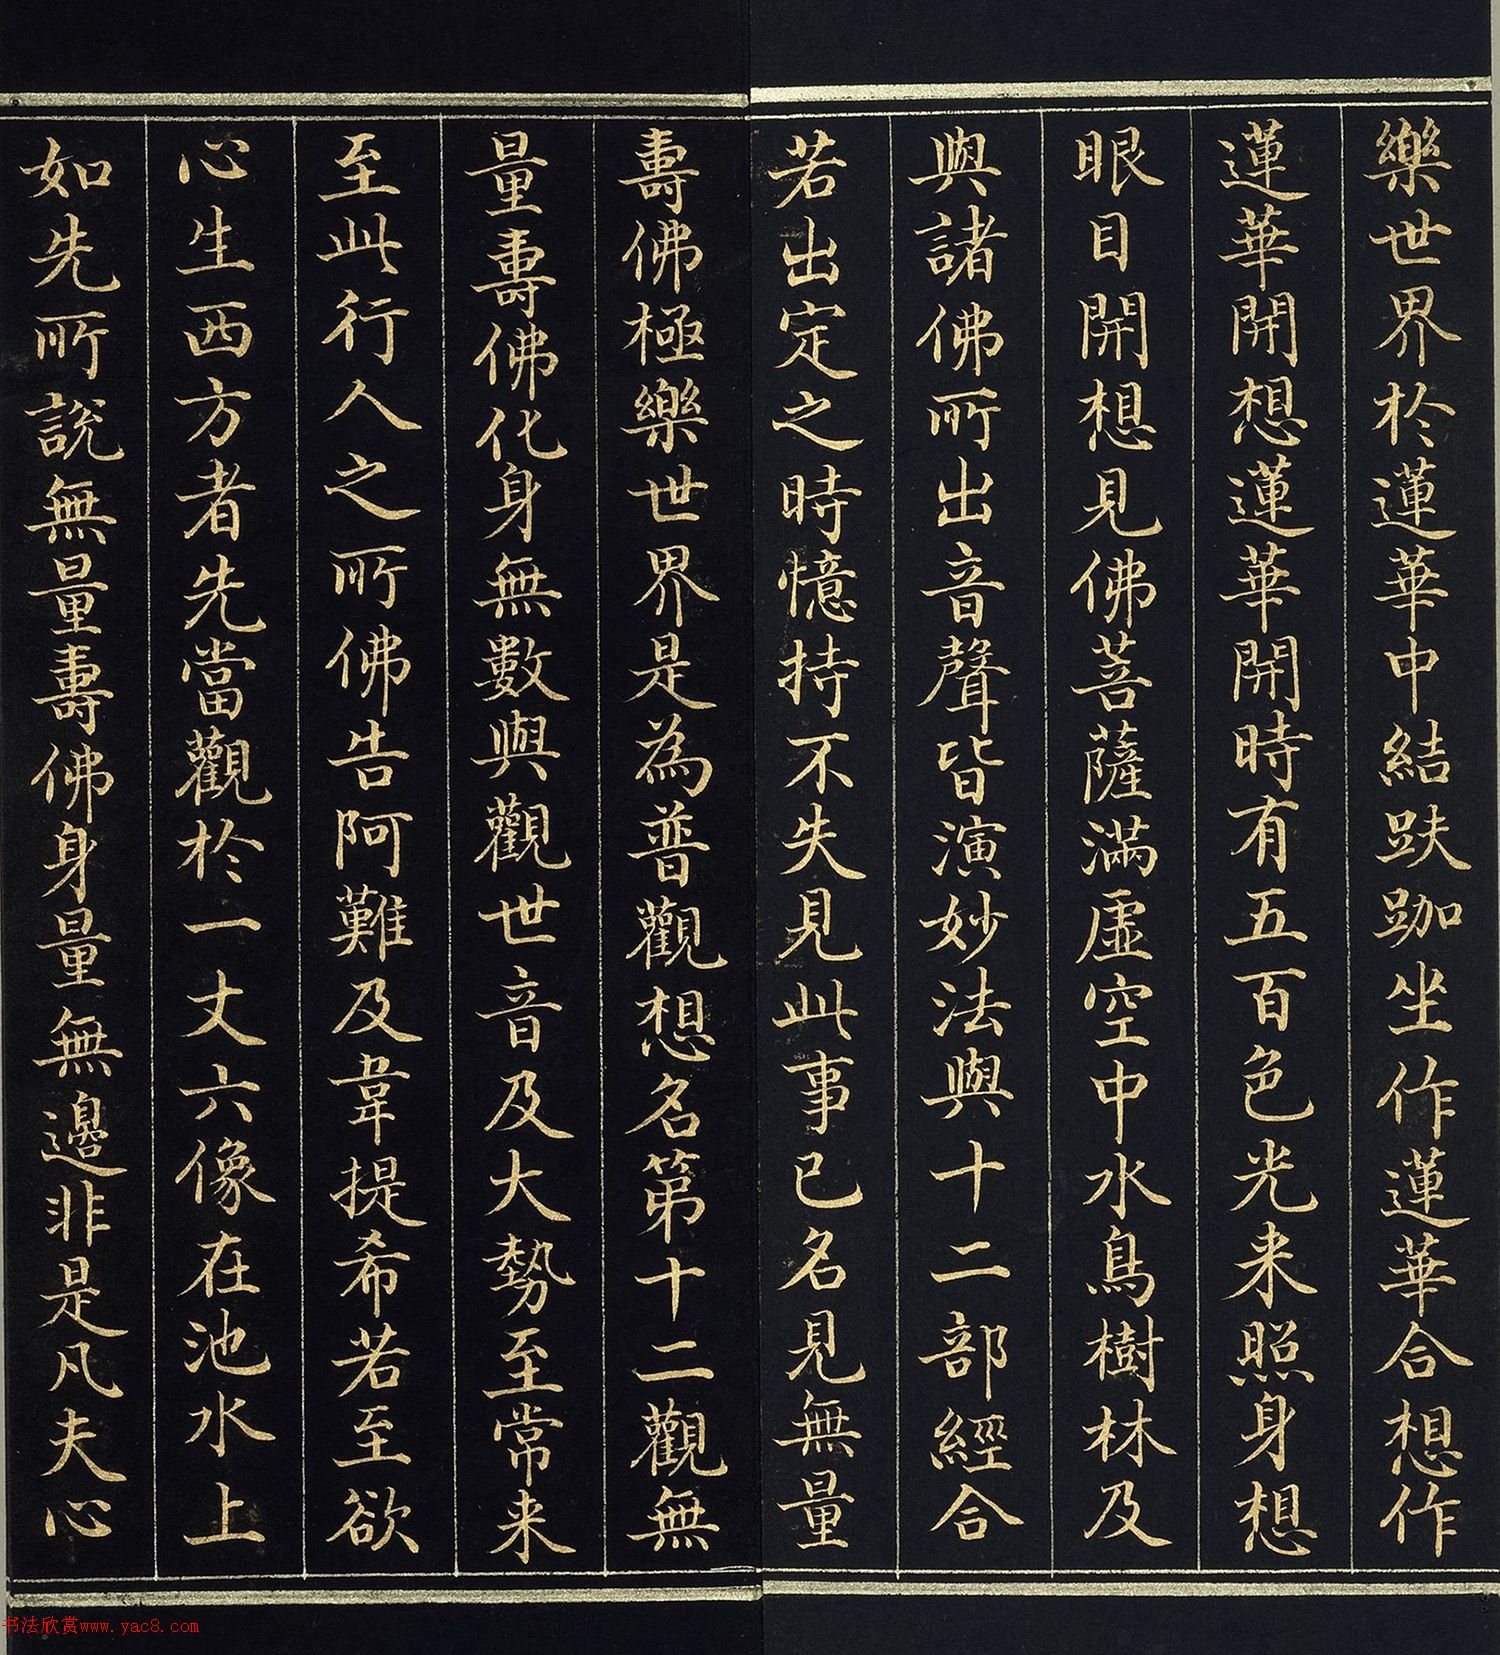 樂世界於蓮華中結趺跏坐作蓮華合想作
蓮華開想蓮華開時有五百色光来照身想
眼目開想見佛菩薩滿虛空中水鳥樹林及
與諸佛所出音聲皆演妙法與十二部經合
若出定之時憶持不失見此事已名見無量
壽佛極樂世界是為普觀想名第十二觀無
量壽佛化身無數與觀世音及大勢至常来
至此行人之所佛告阿難及韋提希若至欲
心生西方者先當觀於一丈六像在池水上
如先所說無量壽佛身量無邊非是凡夫心
书法欣赏www.yac8.com